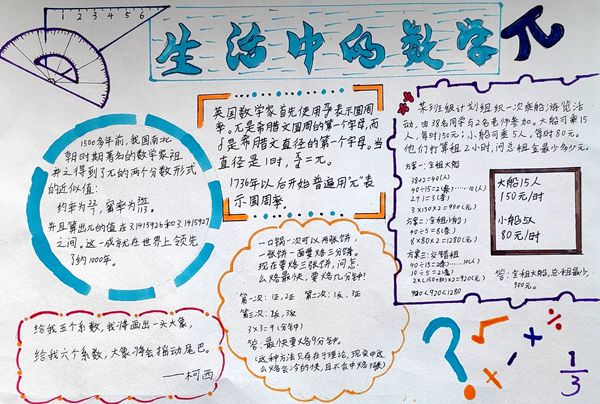 生活中的数学 π
1 2 3 4 5 6
1500多年前,我国南北
朝时期著名的数学家祖
冲之得到了π的两个分数形式
的近似值:
约率为22/7,密率为355/113。
并且算出π的值在3.1415926和3.1415927
之间。这一成就在世界上领先
了约1000年。
英国数学家首先使用π/δ表示圆周
率。π是希腊文圆周的第一个字母,而
δ是希腊文直径的第一个字母。当
直径是1时,π/δ=π。
1736年以后开始普遍用"π"表
示圆周率。
某班班级计划组织一次乘船游览活
动,由38名同学与2名老师参加。大船可乘15
人,每时150元;小船可乘5人,每时80元。
他们打算租2小时,问总租金最少多少元。
方案一:全租大船
38+2=40(人)
40÷15=2(条)……10(人)
2+1=3(条)
3×150×2=900(元)
方案二:全租小船
40÷5=8(条)
8×80×2=1280(元)
方案三:交错租
40÷15=2(条)……10(人)
10÷5=2(条)
2×(150+80)×2=920(元)
900<920<1280
大船15人
150元/时
小船5人
80元/时
答:全租大船,总租金最少,
900元。
一口锅一次可以两张饼,
一张饼一面要烙三分钟。
现在要烙三张饼,问怎
么烙最快,要烙几分钟?
第一次:1正,2正 第二次:1反,3正
第三次:2反,3反
3×3=9(分钟)
答:最快要烙9分钟。
(这种方法只存在于理论,现实中这
么烙会冷的快,且不会中烙3张)
给我五个系数,我将画出一头大象,
给我六个系数,大象将会摇动尾巴。
——柯西
? √ ÷ + × 1/3